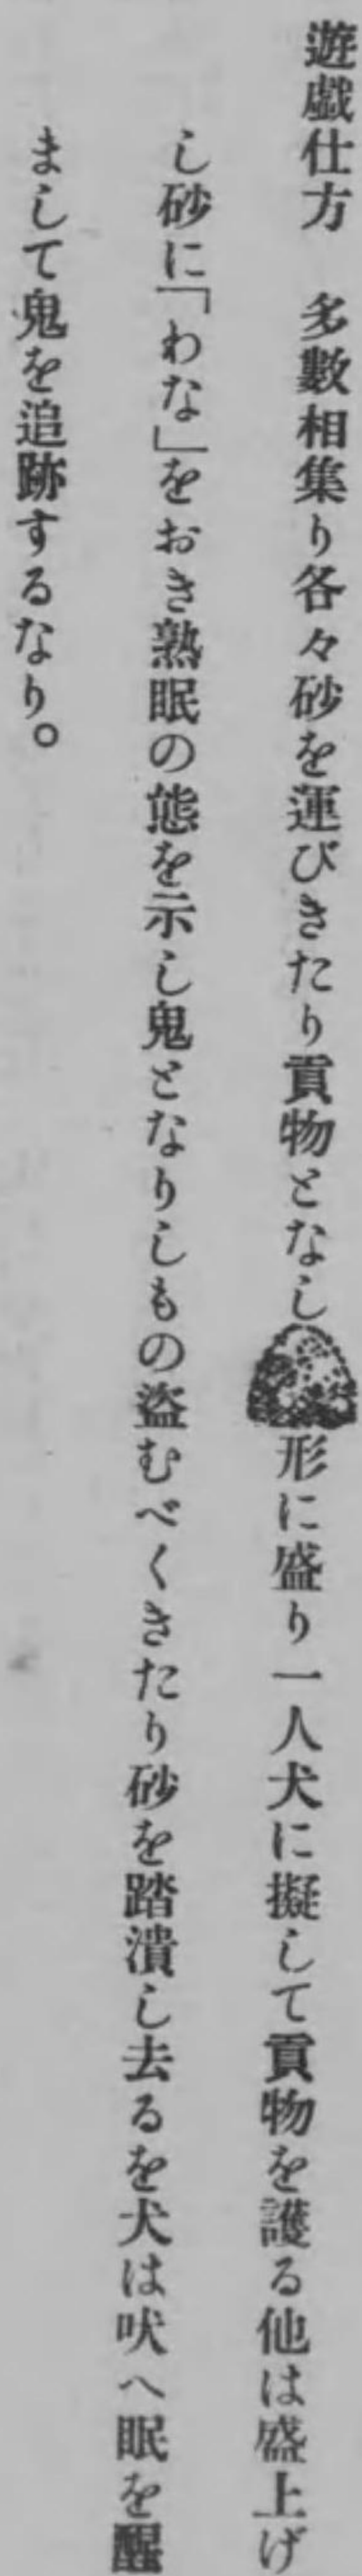 遊戯仕方　多數相集り各々砂を運びきたり貢物となし形に盛り一人犬に擬して貢物を護る他は盛上げ
し砂に「わな」をおき熟眠の態を示し鬼となりしもの盜むべくきたり砂を踏潰し去るを犬は吠へ眠を醒
まして鬼を追跡するなり。